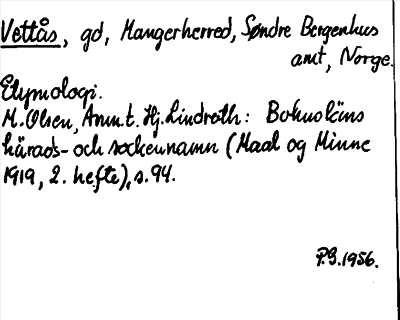 Vettås, gd, Mangerherred, Søndre Bergenhus
amt, Norge.
Etymologi.
M. Olsen, Anm. t. Hj. Lindroth: Bohusläns
härads- och sockennamn (Maal og Minne
1919, 2. hefte), s. 94.
P.G. 1956.